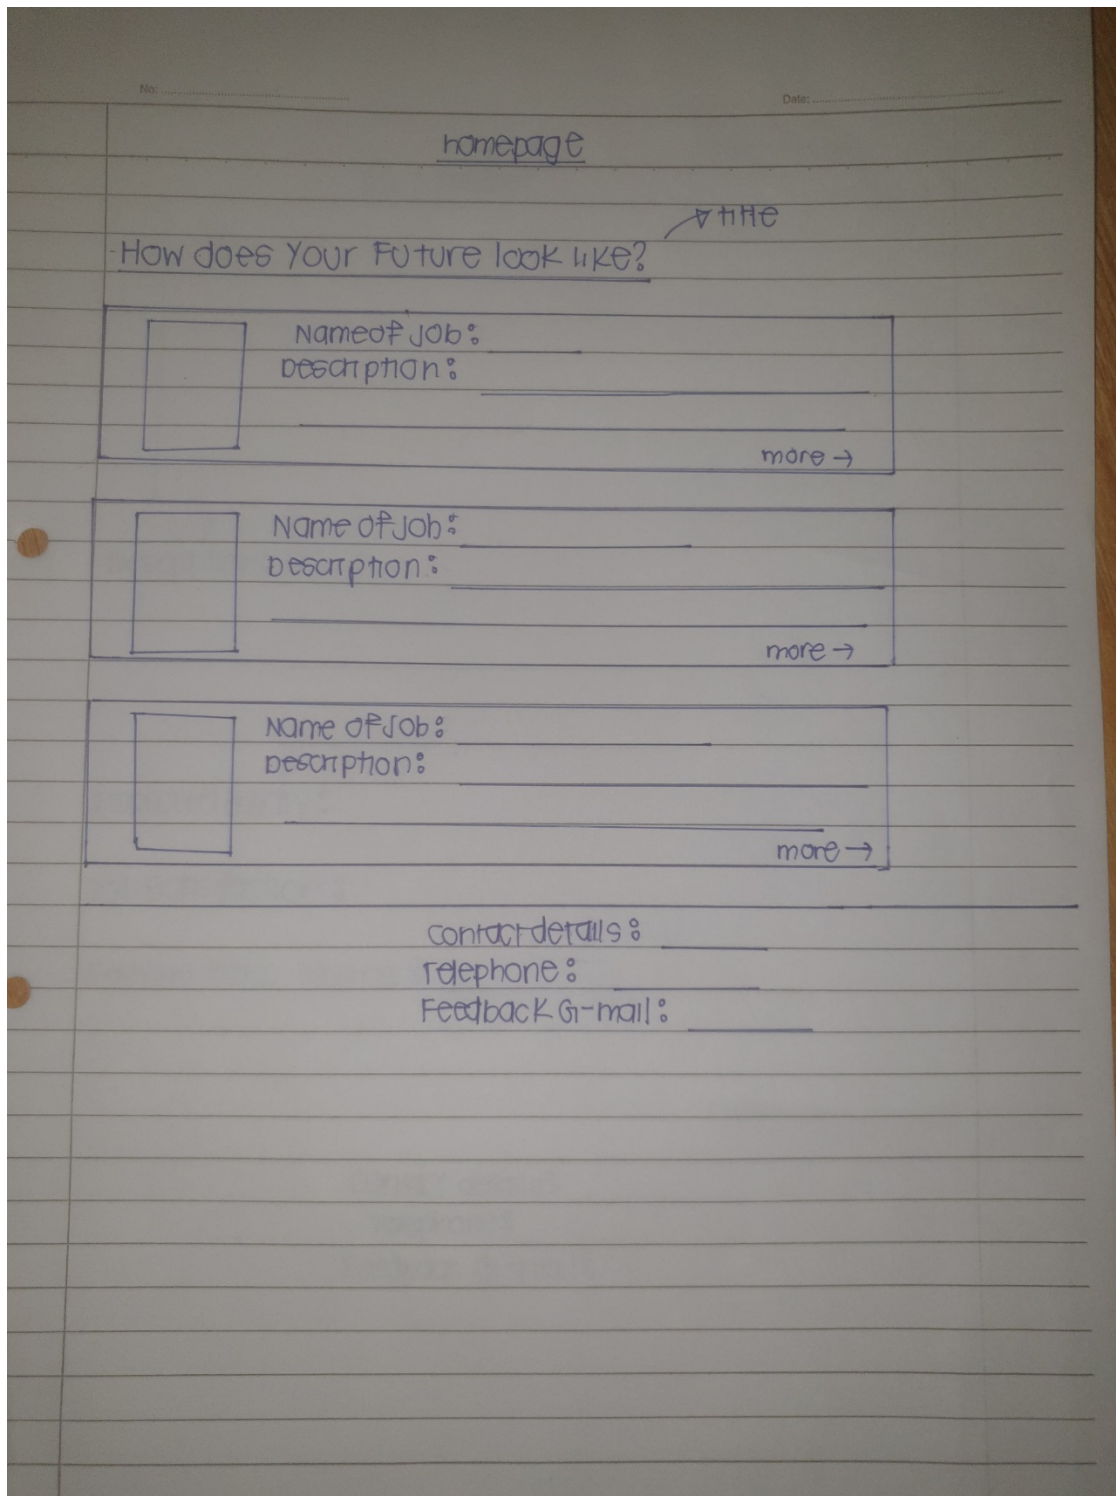 No:
Date:
homepage
title
How does Your Future look like?
Name of Job:
Description:
more →
Name of Job:
Description:
more →
Name of Job:
Description:
more →
Contact details:
Telephone:
Feedback G-mail: